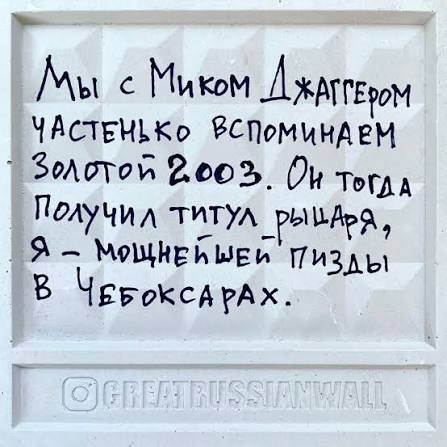 Мы с Миком Джаггером
частенько вспоминаем
золотой 2003. Он тогда
получил титул рыцаря,
я – мощнейшей пизды
в Чебоксарах.
GREATRUSSIANWALL